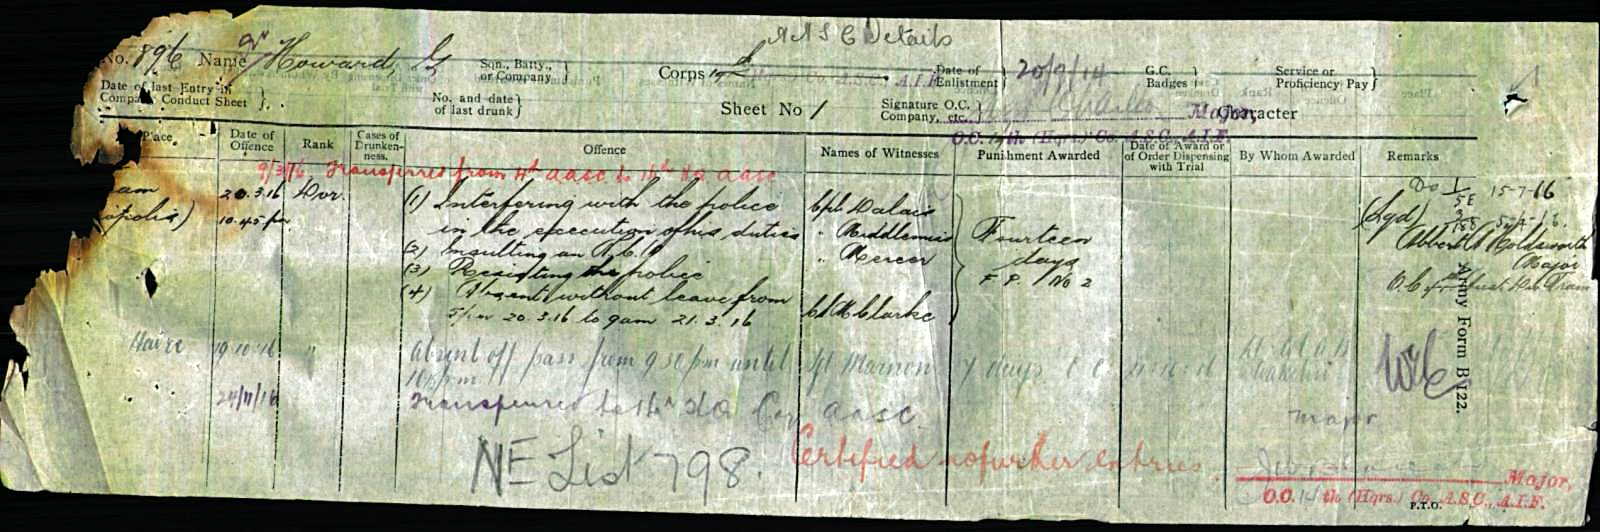 AASC Details
No. 896 Name Howard, G Sqn., Batty., or Company Corps A.S.C. A.I.F. Date of Enlistment 20/9/14 G.C. Badges Service or Proficiency Pay
Date of last Entry in Company Conduct Sheet No. and date of last drunk Sheet No 1 Signature O.C. Company, etc. Major, Character
O.C. 14th (Hqrs.) Co. A.S.C. A.I.F.
Place Date of Offence Rank Cases of Drunkenness. Offence Names of Witnesses Punishment Awarded Date of Award or of Order Dispensing with Trial By Whom Awarded Remarks
9/3/16 Transferred from 4th aasc to 14th HQ aasc
20.3.16 Dvr. (1) Interfering with the police Cpl. Dalais 15-7-16
10.45 pm in the execution of his duties " Middlemiss Fourteen (Sgd)
(2) Insulting an N.C.O " Mercer days Holdsworth
(3) Resisting the police F P. No 2 Major
(4) Absent without leave from Clarke O.C.
5pm 20.3.16 to 9am 21.3.16
Havre 19.10.16 " Absent off pass from 9 30 pm until Sgt 7 days C C
24/11/16 Transferred to 14th HQ Coy aasc. Major
NE List 798. Certified no further entries.
Major,
O.C. 14th (Hqrs.) Co. A.S.C., A.I.F.
P.T.O.
Army Form B 122.